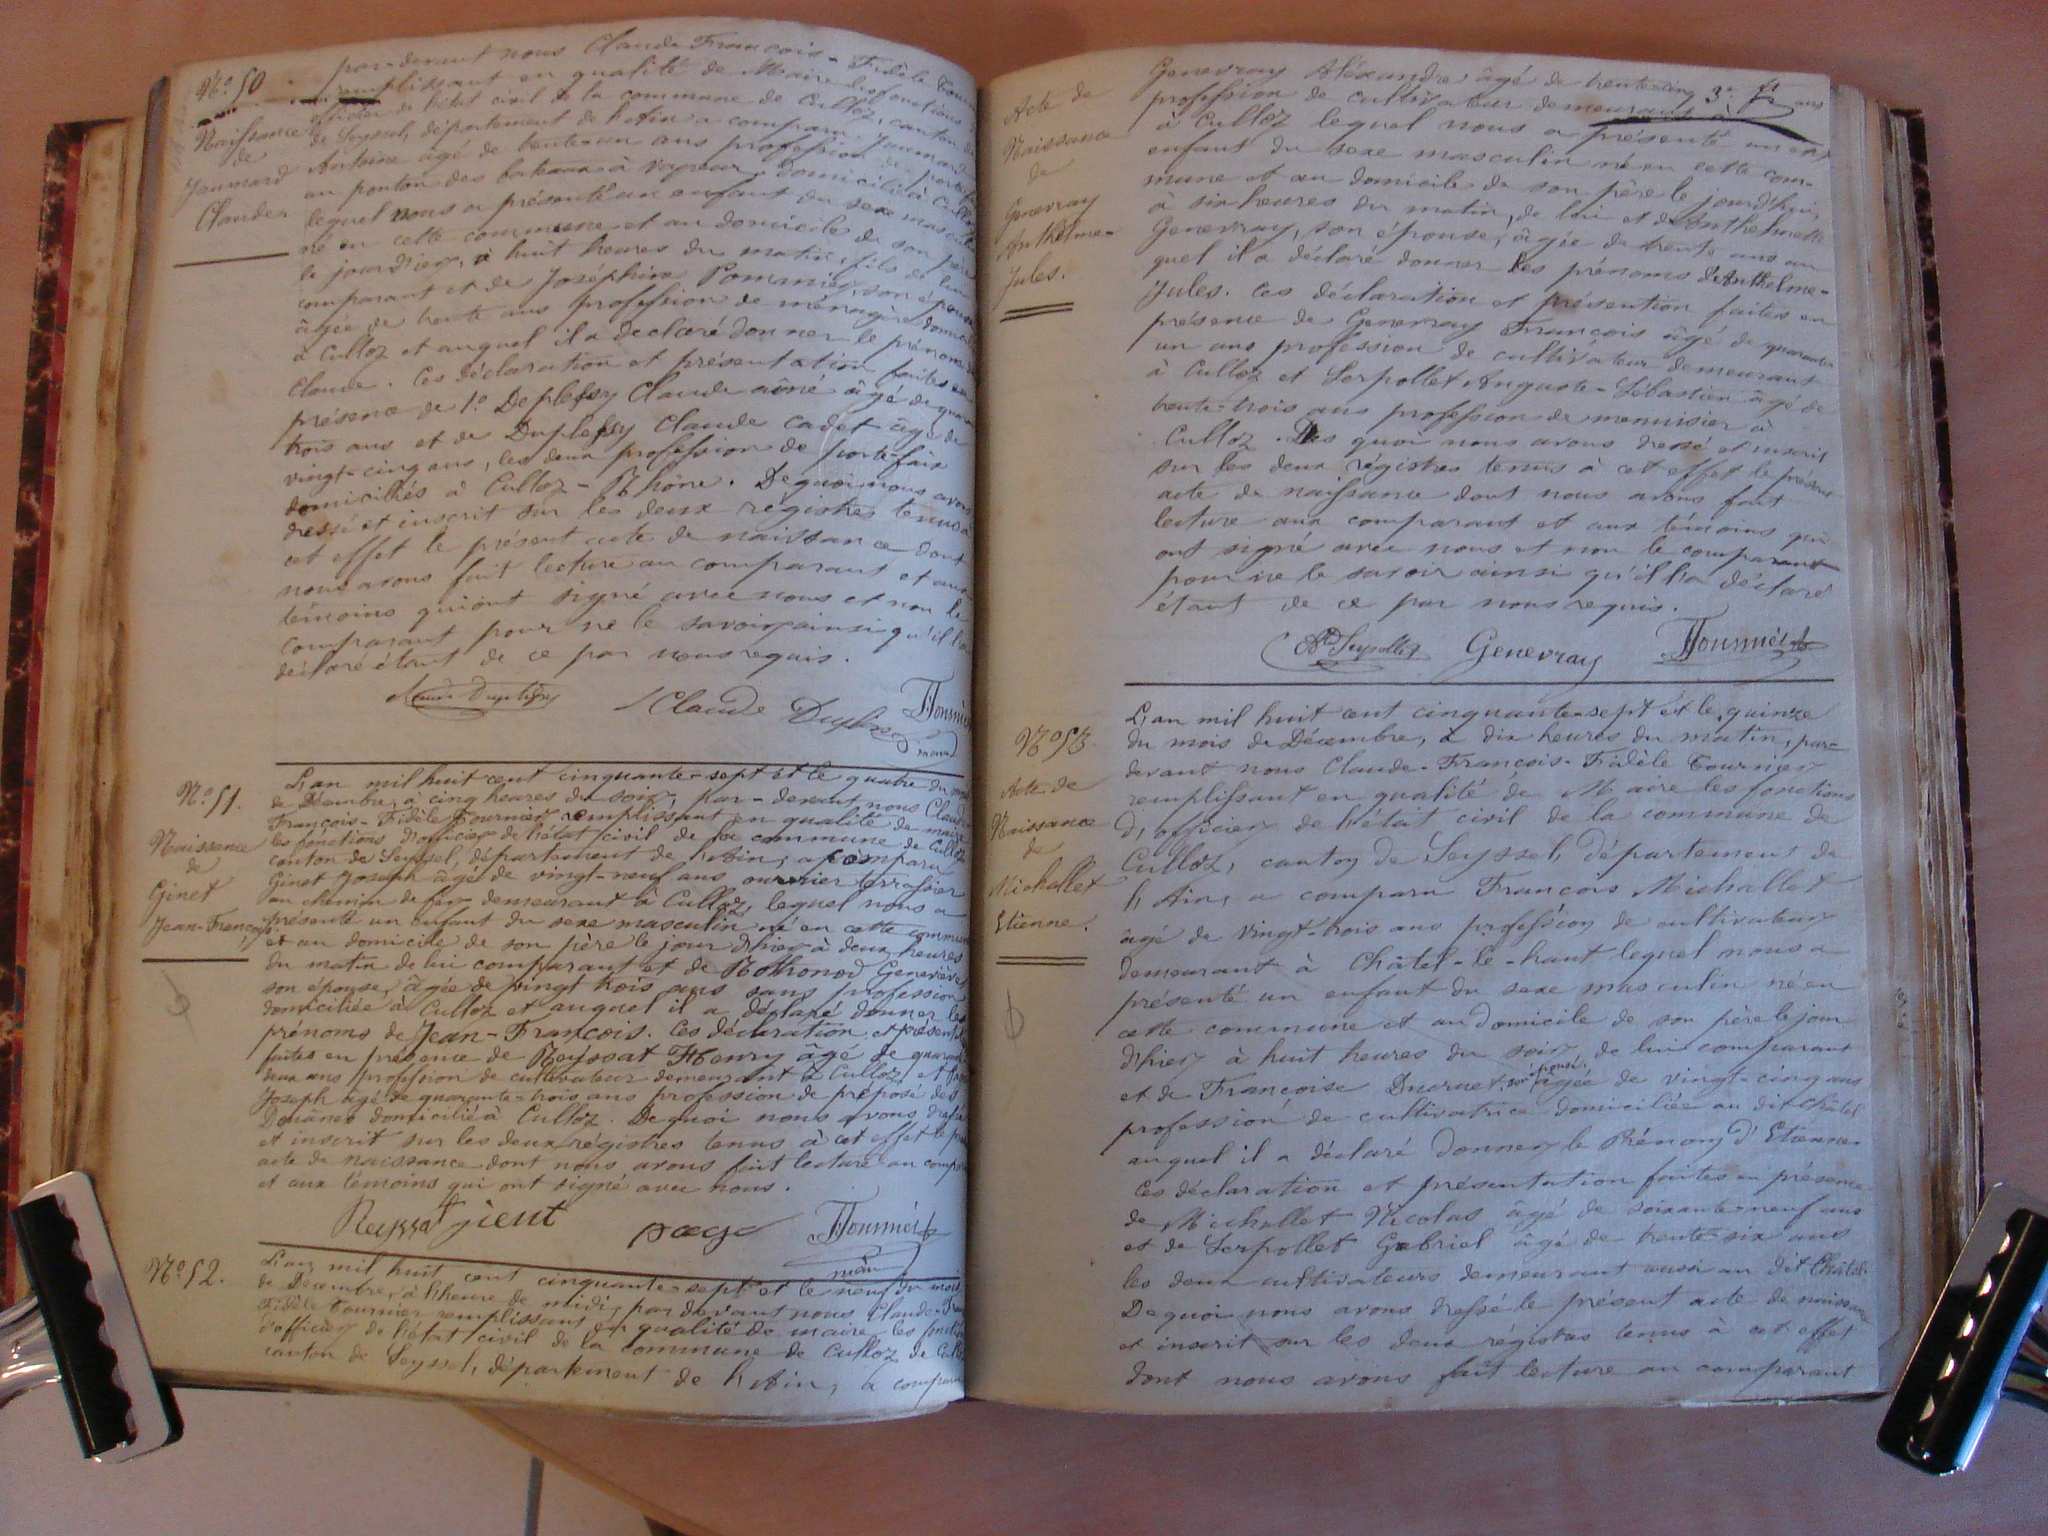 No 50
Naissance
de
Jeunard
Claude
par-devant nous Claude François-Fidèle
remplissant en qualité de Maire les fonctions
officier de l'état civil de la commune de Culloz, canton de
de Seyssel, département de l'Ain a comparu
Antoine âgé de trente-un ans profession de
au ponton des bateaux à vapeur, domicilié à Culloz
lequel nous a présenté un enfant du sexe
né en cette commune et au domicile de son père
le jour d'hier, à huit heures du matin, fils de lui
comparant et de Joséphine Pommier, son épouse
âgée de trente ans profession de ménagère
à Culloz et auquel il a declaré donner le prénom de
Claude. Ces déclaration et présentation faites en
présence de 1° Duplessy Claude aîné âgé de
trois ans et de Duplessy Claude cadet âgé de
vingt-cinq ans, les deux profession de porte-faix
domiciliés à Culloz-Rhône. De quoi nous avons
dressé et inscrit sur les deux régistres tenus à
cet effet le présent acte de naissance dont
nous avons fait lecture au comparant et aux
témoins qui ont signé avec nous et non le
comparant pour ne le savoir ainsi qu'il l'a
déclaré étant de ce par nous requis.
Claude
No 51.
Naissance
de
Ginet
Jean-François
L'an mil huit cent cinquante-sept et le quatre du
de Décembre, à cinq heures du soir, par-devant nous Claude
François-Fidèle Tournier remplissant en qualité de maire
les fonctions d'officier de l'état civil de la commune de Culloz
canton de Seyssel, département de l'Ain, a comparu
Ginet Joseph âgé de vingt-neuf ans ouvrier terrassier
au chemin de fer demeurant à Culloz, lequel nous a
présenté un enfant du sexe masculin né en cette commune
et au domicile de son père le jour d'hier à deux heures
du matin de lui comparant et de Genevière
son épouse, âgée de vingt trois ans sans profession
domiciliée à Culloz et auquel il a déclaré donner les
prénoms de Jean-François. Ces déclaration et
faites en présence de Reyssat Henry âgé de
deux ans profession de cultivateur demeurant à Culloz et
Joseph âgé de quarante-trois ans profession de préposé des
Douânes domicilié à Culloz. De quoi nous avons
et inscrit sur les deux régistres tenus à cet effet le
acte de naissance dont nous avons fait lecture au
et aux témoins qui ont signé avec nous.
No 52.
L'an mil huit cent cinquante-sept et le neuf du mois
de Décembre, à l'heure de midi, par devant nous Claude
Fidèle Tournier remplissant en qualité de maire les
d'officier de l'état civil de la commune de Culloz
canton de Seyssel, département de l'Ain, a
Acte de
Naissance
de
Genevray
Anthelme-
Jules.
Genevray Aléxandre âgé de trente-cinq ans
profession de cultivateur demeurant à
à Culloz lequel nous a présenté un
enfant du sexe masculin né en cette com-
mune et au domicile de son père le jourd'hui,
à six heures du matin, de lui et d'Anthelmette
Genevray, son épouse, âgée de trente ans au
quel il a déclaré donner les prénoms d'Anthelme-
Jules. Ces déclaration et présention faites en
présence de Genevray François âgé de quarante
un ans profession de cultivateur demeurant
à Culloz et Serpollet Auguste-Sébastien âgé de
trente-trois ans profession de menuisier à
Culloz. De quoi nous avons dressé et inscrit
sur les deux régistres tenus à cet effet le présent
acte de naissance dont nous avons fait
lecture aux comparant et aux témoins qui
ont signé avec nous et non le comparant
pour ne le savoir ainsi qu'il l'a déclaré
étant de ce par nous requis.
Serpollet Genevray Tournier
No 53.
Acte de
Naissance
de
Michallet
Etienne.
L'an mil huit cent cinquante-sept et le quinze
du mois de Décembre, à dix heures du matin, par-
devant nous Claude-François-Fidèle Tournier
remplissant en qualité de Maire les fonctions
d'officier de l'état civil de la commune de
Culloz, canton de Seyssel, département de
l'Ain, a comparu François Michallet
âgé de vingt-trois ans profession de cultivateur
demeurant à Châtel-le-haut lequel nous a
présenté un enfant du sexe masculin né en
cette commune et au domicile de son père le jour
d'hier à huit heures du soir, de lui comparant
et de Françoise Ducruet, son épouse, âgée de vingt-cinq ans
profession de cultivatrice domiciliée au dit Châtel
auquel il a déclaré donner le Prénom d'Etienne
Ces déclaration et présentation faites en présence
de Michallet Nicolas âgé de soixante-neuf ans
et de Serpollet Gabriel âgé de trente-six ans
les deux cultivateurs demeurant aussi au dit Châtel.
De quoi nous avons dressé le présent acte de naissance
et inscrit sur les deux régistres tenus à cet effet
dont nous avons fait lecture au comparant